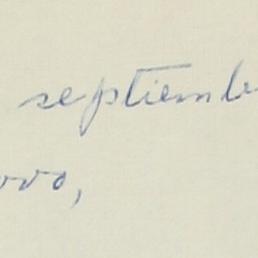 septiemb
ovo,